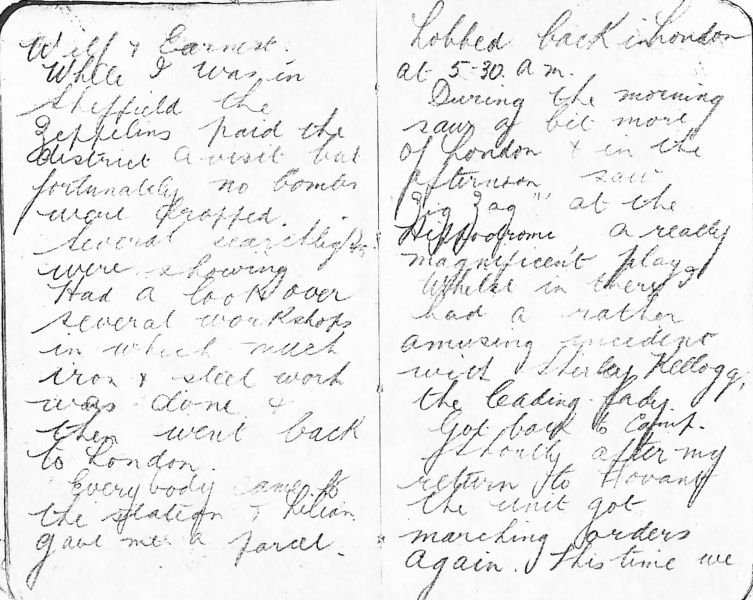 Wilf & Earnest.
While I was in
Sheffield the
Zeppelins paid the
district a visit but
fortunately no bombs
were dropped.
Several searchlights
were showing
Had a look over
several workshops
in which much
iron & steel work
was done &
then went back
to London.
Everybody came to
the station & Lilian
gave me a parcel.
Lobbed back in London
at 5-30. a.m.
During the morning
saw a bit more
of London & in the
afternoon saw
Zig Zag" at the
Hippodrome a really
magnificent play.
Whilst in there I
had a rather
amusing incident
with Shirley Kellogg,
the leading lady.
Got back to Camp.
Shortly after my
return to Hovant
the unit got
marching orders
again. This time we